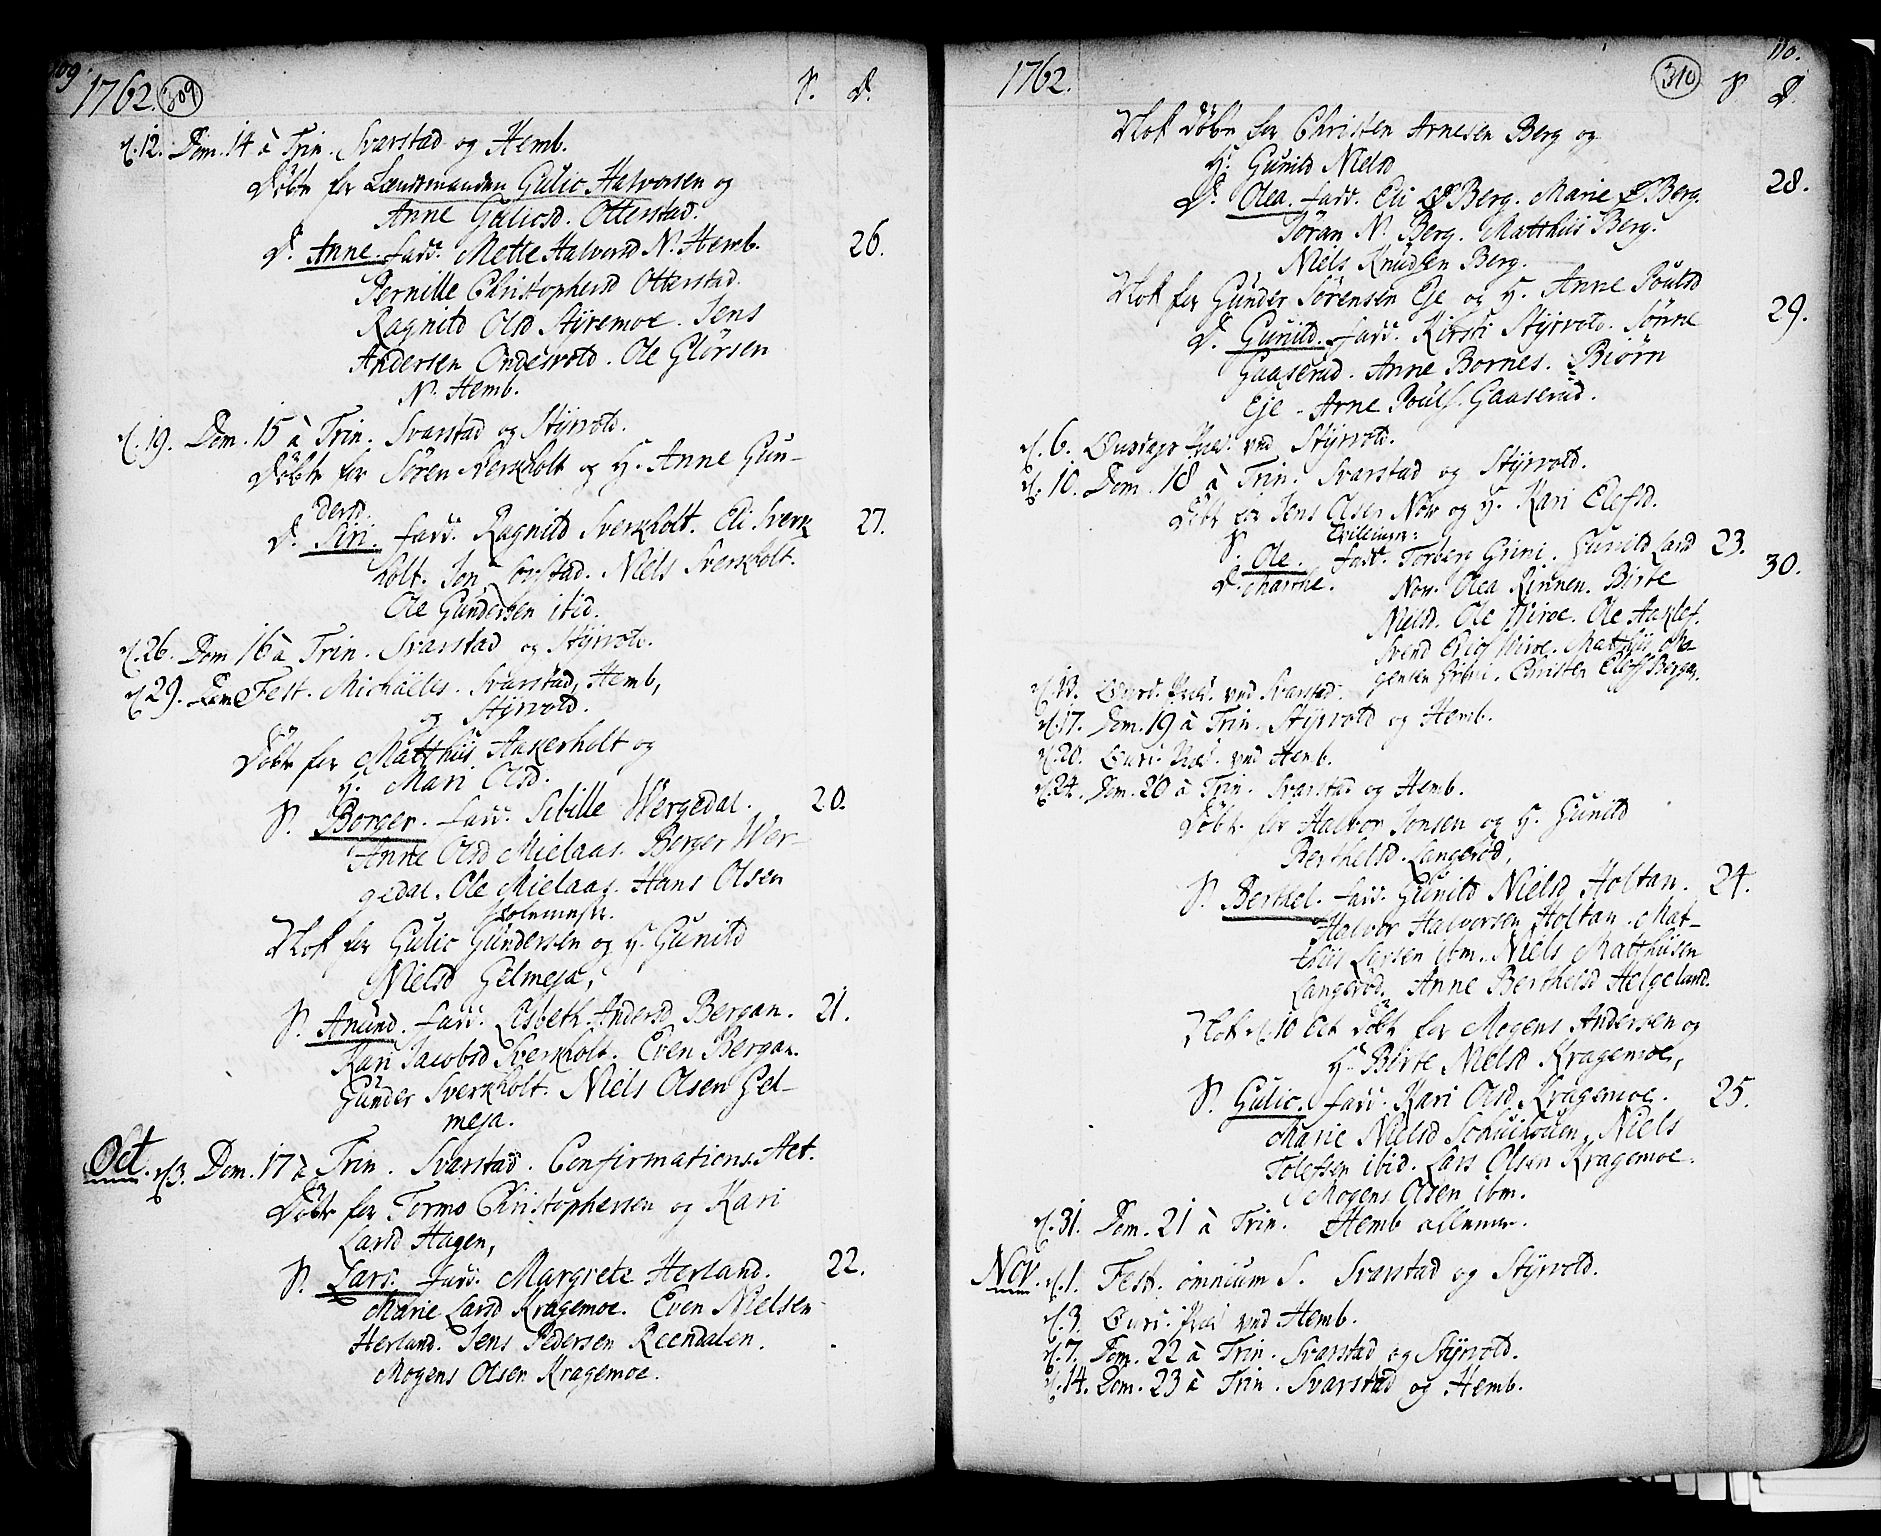 109.
1762. 309
S. D.
d. 12. Dom. 14 à Trin. Svarstad og Hemb.
Døbt for Lensmanden Gulic Halvorsen og
Anne Gulicsd. Otterstad.
D. Anne. fadd. Mette Halvorsd N. Hemb. 26.
Pernille Christophersd Otterstad.
Ragnild Olsd Styremoe. Jens
Andersen Ondesvold. Ole Glörsen
N. Hemb.
d. 19. Dom. 15 à Trin. Svarstad og Styrvold.
Døbt for Sören Sverkholt og H. Anne Gun-
dersd.
D. Siri. fadd. Ragnild Sverkholt. Eli Sverk 27.
holt. Jon Lofstad. Niels Sverkholt.
Ole Gundersen ibid.
d. 26. Dom 16 à Trin. Svarstad og Styrvold.
d. 29. Fest. Michaelis. Svarstad, Hemb,
og Styrvold.
Døbt for Matthiis Aakerholt og
H. Mari Olsd.
S. Borger. fadd. Sibille Wergedal. 20.
Anne Olsd Mielaas. Borger Wer-
gedal. Ole Mielaas. Hans Olsen
Nok for Gulic Gundersen og H. Gunild
Nielsd Gelmeja,
S. Anund. fadd. Lisbeth Andersd Bergan. 21.
Kari Jacobsd Sverkholt. Even Bergan.
Gunder Sverkholt. Niels Olsen Gel-
meja.
Oct. d. 3. Dom. 17 à Trin. Svarstad. Confirmations Act.
Døbt for Tormo Christophersen og Kari
Larsd Hagen,
S. Lars. fadd. Margrete Herland. 22.
Marie Larsd Kragemoe. Even Nielsen
Herland. Jens Pedersen Reendalen.
Mogens Olsen Kragemoe.
110.
1762. 310
S. D.
Nok døbt for Christen Arnesen Berg og
H. Gunild Nielsd
D. Olea. fadd. Eli Berg. Marie Berg. 28.
Söran N. Berg. Matthiis Berg.
Niels Knudsen Berg.
Nok for Gunder Sørensen Eje og H. Anne Poulsd
D. Gunild. fadd. Kirsti Styrvold. Sønne 29.
Gaaserud. Anne Bornes. Biørn
Eje. Arne Pouls. Gaaserud.
d. 6. Onsdags Præd. ved Styrvold.
d. 10. Dom. 18 à Trin. Svarstad og Styrvold.
Døbt for Jens Olsen Nov og H. Kari Elefsd.
Tvillinger:
S. Ole. fadd. Torberg Grini. Gunild Land 23.
D. Marthe. Nov. Olea Rinnen. Birte 30.
Nielsd. Ole Wirve. Ole Aaslef.
Svend Wirve. Matthiis Mo-
gensen Grini. Christen Elefs Bergan.
d. 13. Onsd. Præd. ved Svarstad.
d. 17. Dom. 19 à Trin. Styrvold og Hemb.
d. 20. Onsd. Præd. ved Hemb.
d. 24. Dom. 20 à Trin. Svarstad og Hemb.
Døbt for Halvor Jonsen og H. Gunild
Berthelsd Langerød,
S. Berthel. fadd. Gunild Nielsd Holtan. 24.
Halvor Halvorsen Holtan. Mat-
thiis Larsen ibm. Niels Matthiisen
Langerød. Anne Berthelsd Helgeland.
Nok d. 10 Oct døbt for Mogens Andersen og
H. Birte Nielsd Kragemoe,
S. Gulic. fadd. Kari Olsd Kragemoe. 25.
Marie Nielsd. Niels
Tolefsen ibid. Lars Olsen Kragemoe.
Mogens Olsen ibm.
d. 31. Dom. 21 à Trin. Hemb allene.
Nov. d. 1. Fest. omnium S. Svarstad og Styrvold.
d. 3. Onsd. Præd ved Hemb.
d. 7. Dom. 22 à Trin. Svarstad og Styrvold.
d. 14. Dom. 23 à Trin. Svarstad og Hemb.